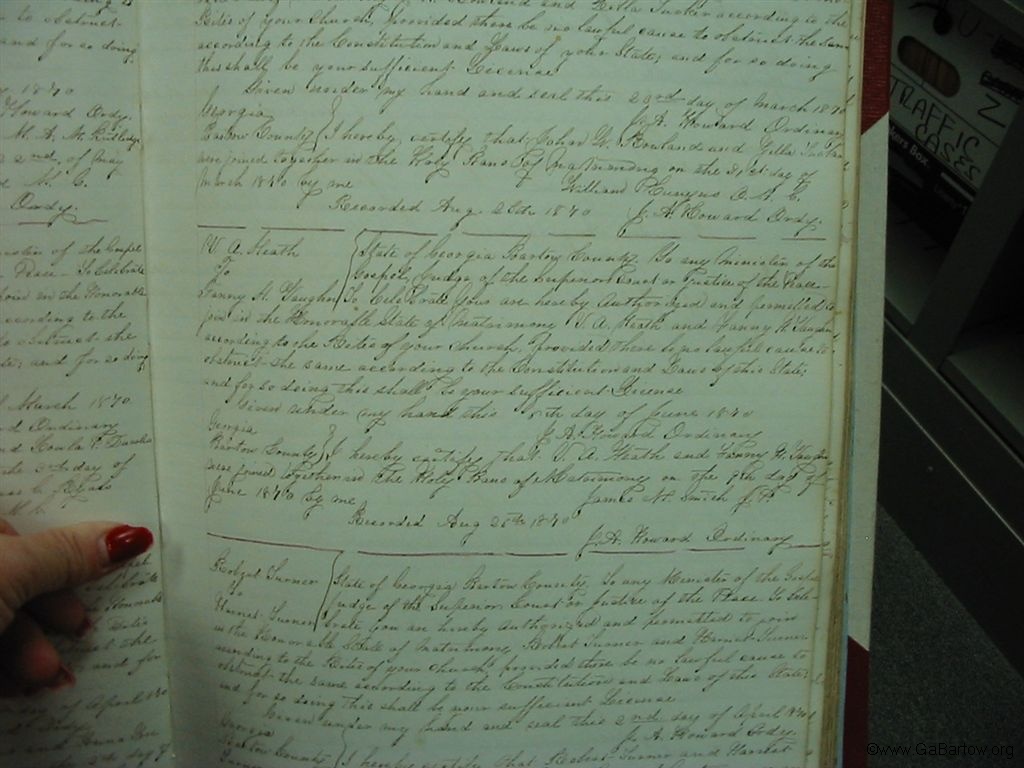 to obstruct
and for so doing
1870
Howard Ordy.
M. A. N.
2nd, of May
M. G.
Ordy.
of the Gospel
Place - To Celebrate
join in the Honorable
according to the
to obstruct the
State; and for so doing
March 1870
Ordinary
and
3rd day of
and Ella Tucker according to the
Rites of your Church, provided there be no lawful cause to obstruct the same
according to the Constitution and Laws of your State; and for so doing
this shall be your sufficient License
Given under my hand and seal this 20th day of March 1870
Georgia J. A. Howard Ordinary
Bartow County } I hereby certify that John W. Rowland and Ella Tucker
were joined together in the Holy Bans of Matrimony on the 21st day of
March 1870 by me William O. M. G.
Recorded Aug 25th 1870 J. A. Howard Ordy.
W. A. Heath { State of Georgia Bartow County. To any Minister of the
To Gospel, Judge of the Superior Court or Justice of the Peace
Fanny H. Vaughn To Celebrate you are hereby authorized and permitted to
join in the Honorable State of Matrimony W. A. Heath and Fanny H. Vaughn
according to the Rites of your church, provided there be no lawful cause to
obstruct the same according to the Constitution and Laws of this State,
and for so doing this shall be your sufficient License
Given under my hand this 8th day of June 1870
Georgia J. A. Howard Ordinary
Bartow County } I hereby certify that W. A. Heath and Fanny H. Vaughn
were joined together in the Holy Bans of Matrimony on the 9th day of
June 1870 by me James M. Smith J. P.
Recorded Aug 25th 1870
J. A. Howard Ordinary
Robert Turner { State of Georgia Bartow County, To any Minister of the Gospel
To Judge of the Superior Court or Justice of the Peace To Cele-
Harriet Turner brate you are hereby authorized and permitted to join
in the Honorable State of Matrimony Robert Turner and Harriet Turner
according to the Rites of your church, provided there be no lawful cause to
obstruct the same according to the Constitution and Laws of this State
and for so doing this shall be your sufficient License
Given under my hand and seal this 2nd day of April 1870
Georgia J. A. Howard Ordy.
Bartow County { I hereby certify that Robert Turner and Harriet
TRAFFIC
CASES
©www.GaBartow.org